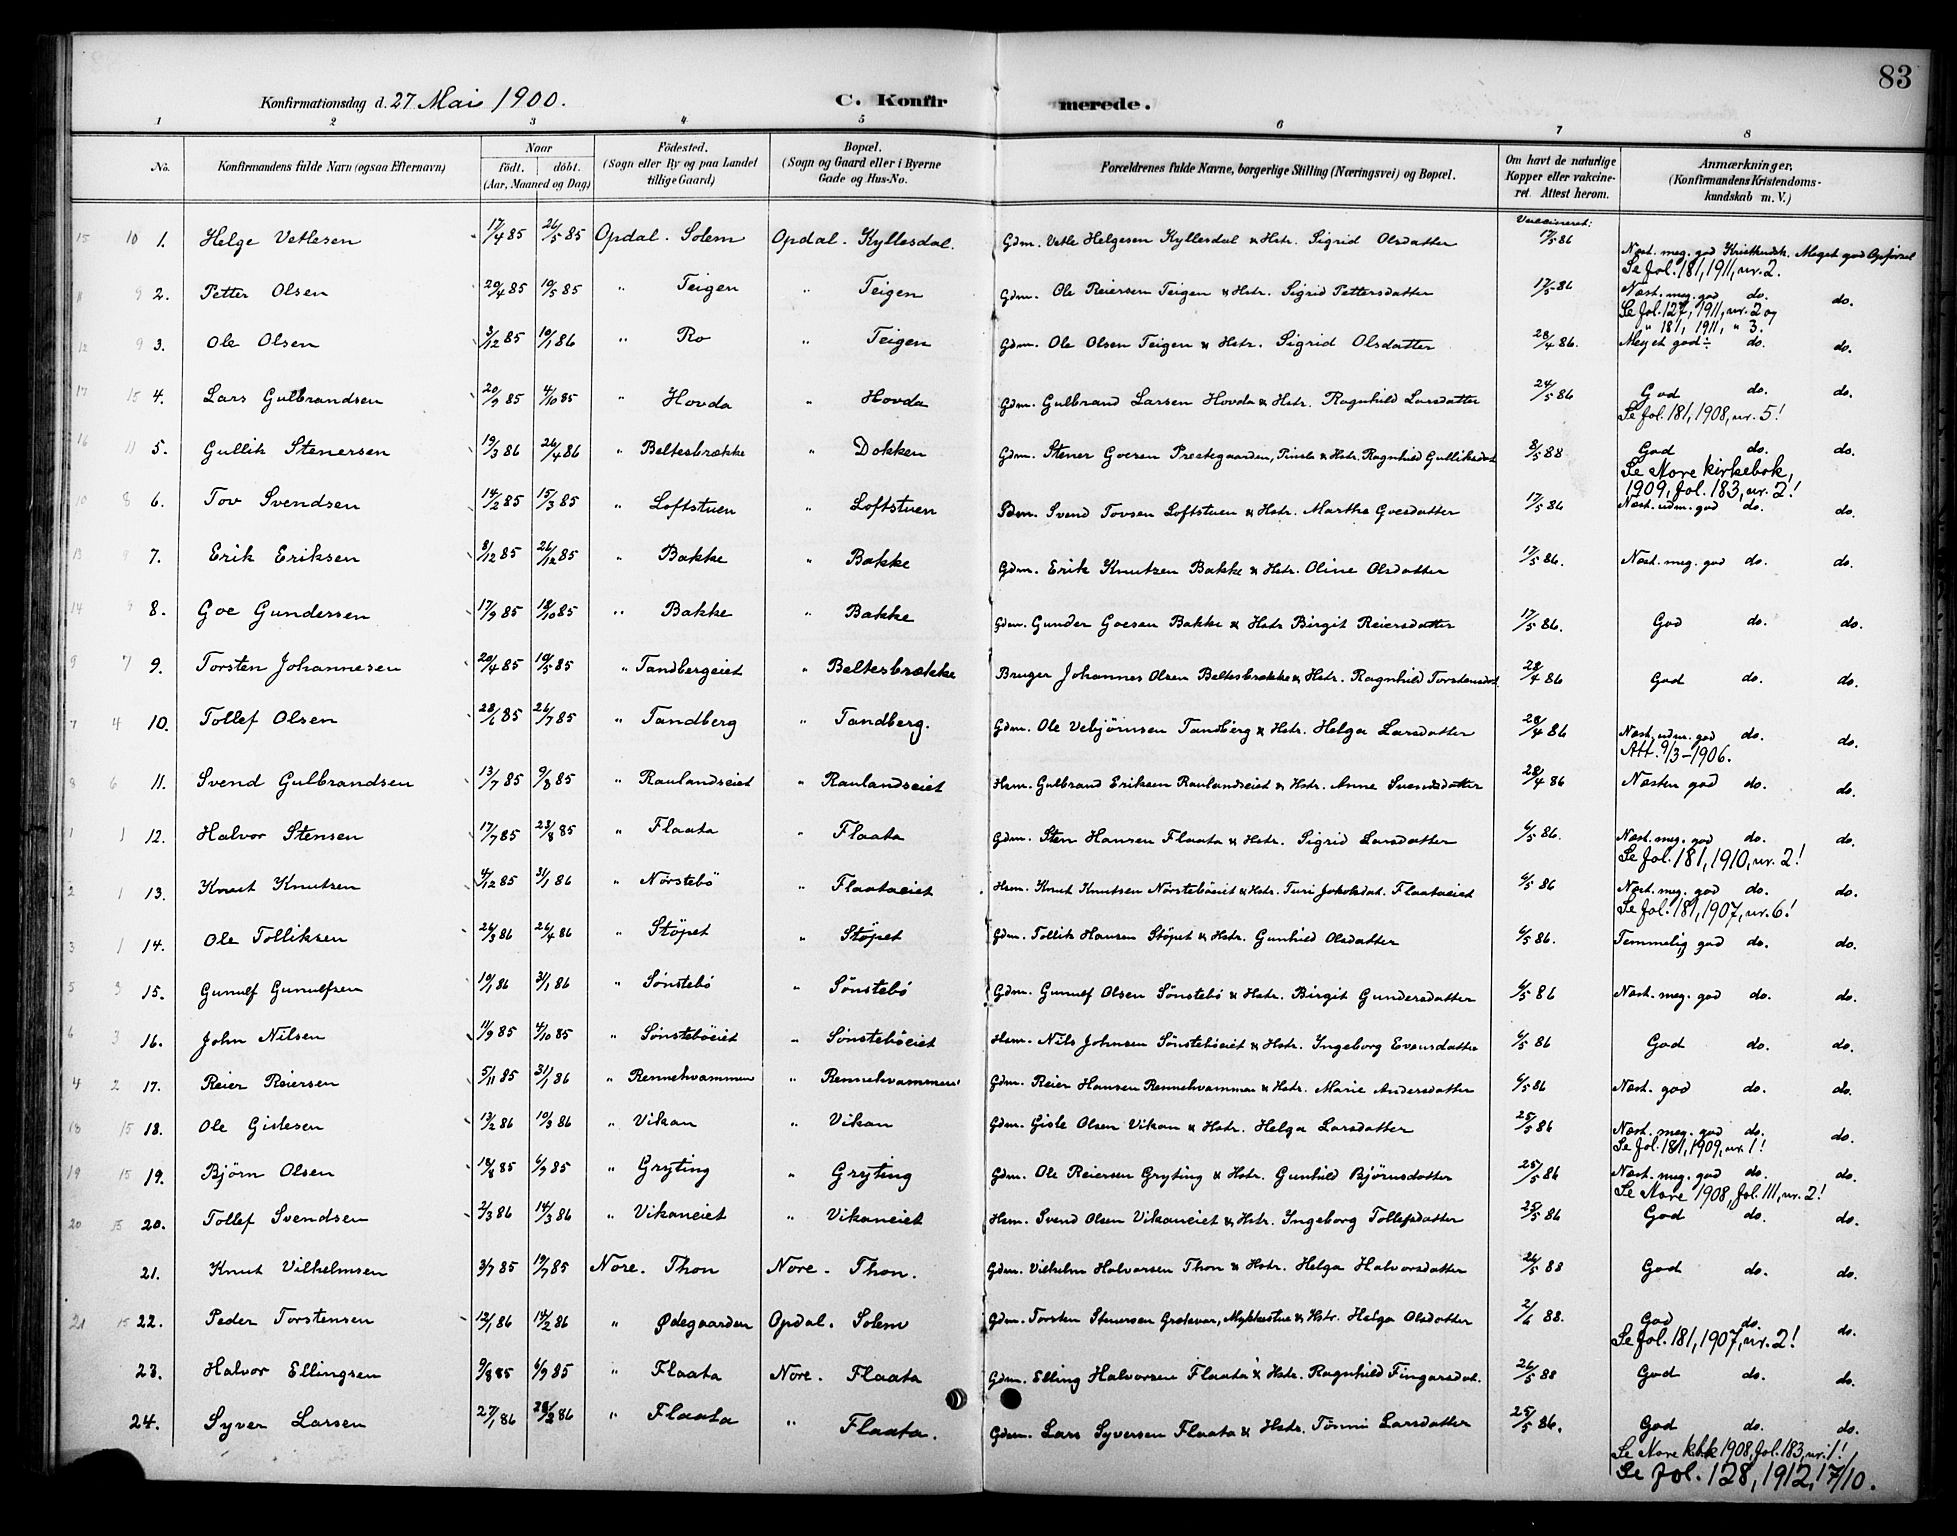 83
Konfirmationsdag d. 27 Mai 1900. C. Konfirmerede.
1 2 3 4 5 6 7 8
No. Konfirmandens fulde Navn (ogsaa Efternavn) Naar födt. döbt. (Aar, Maaned og Dag) Födested. (Sogn eller By og paa Landet tillige Gaard) Bopæl. (Sogn og Gaard eller i Byerne Gade og Hus-No. Forældrenes fulde Navne, borgerlige Stilling (Næringsvei) og Bopæl. Om havt de naturlige Kopper eller vakcineret. Attest herom. Anmærkninger. (Konfirmandens Kristendomskundskab m. V.)
Vaccineret:
15 10 1. Helge Vetlesen 17/4 85 26/5 85 Opdal. Solem Opdal. Kyllesdal. Gdm. Vetle Helgesen Kyllesdal & Hstr. Sigrid Olsdatter 17/5 86 Næst. meg. god Kristkundsk. Meget god Opförsel
Se fol. 181, 1911, nr. 2.
9 2. Petter Olsen 20/4 85 10/5 85 " Teigen " Teigen Gdm. Ole Reiersen Teigen & Hstr. Sigrid Pettersdatter 17/5 86 Næst. meg. god do. do.
Se fol. 127, 1911, nr. 2 og
" " 181, 1911, " 3.
12 9 3. Ole Olsen 3/12 85 10/1 86 " Ro " Teigen Gdm. Ole Olsen Teigen & Hstr. Sigrid Olsdatter 28/4 86. Meget god ÷ do. do.
17 15 4. Lars Gulbrandsen 20/9 85 4/10 85 " Hovda " Hovda Gdm. Gulbrand Larsen Hovda & Hstr. Ragnhild Larsdatter 24/5 86 God do. do.
Se fol. 181, 1908, nr. 5!
16 11 5. Gullik Stenersen 19/3 86 26/4 86 " Beltesbrække " Dokken Gdm. Stener Goesen Prestegaarden, Tinslo & Hstr. Ragnhild Gulliksdat 8/5 88 God do. do.
Se Nore kirkebok,
1909, fol. 183, nr. 2!
10 8 6. Tov Svendsen 14/2 85 15/3 85 " Loftstuen " Loftstuen Gdm. Svend Tovsen Loftstuen & Hstr. Martha Goesdatter 17/5 86 Næst. udm. god do. do.
13 9 7. Erik Eriksen 8/12 85 26/12 85 " Bakke " Bakke Gdm. Erik Knutzen Bakke & Hstr. Oline Olsdatter 17/5 86. Næst. meg. god do. do.
14 9 8. Goe Gundersen 17/9 85 18/10 85 " Bakke " Bakke Gdm. Gunder Goesen Bakke & Hstr Birgit Reiersdatter 17/5 86. God do. do.
9 7 9. Torsten Johannesen 20/4 85 10/5 85 " Tandbergeiet " Beltesbrække Bruger Johannes Olsen Beltesbrække & Hstr. Ragnhild Torstensdat. 28/4 86 God do. do.
7 4 10. Tollef Olsen 28/6 85 26/7 85 " Tandberg " Tandberg. Gdm. Ole Vebjörnsen Tandberg & Hstr. Helga Larsdatter 28/4 86 Næst. udm. god do. do.
Att. 9/3-1906.
8 6 11. Svend Gulbrandsen 13/7 85 9/8 85 " Raulandseiet " Raulandseiet Hsm. Gulbrand Eriksen Raulandseiet & Hstr. Anne Svensdatter 28/4 86 Næsten god do. do.
1 1 12. Halvor Stensen 17/7 85 23/8 85 " Flaata " Flaata Gdm. Sten Hansen Flaata & Hstr. Sigrid Larsdatter 6/5 86. Næst. meg. god do. do.
Se fol. 181, 1910, nr. 2!
2 1 13. Knut Knutsen 4/12 85 31/1 86 " Nörstebö " Flaataeiet Hsm. Knut Knutsen Nörsteböeiet & Hstr. Turi Jakobsdat. Flaataeiet 6/5 86 Næst. meg. god do. do.
Se fol. 181, 1907, nr. 6!
3 1 14. Ole Tolliksen 26/3 86 26/4 86 " Stöpet " Stöpet Gdm. Tollik Hansen Stöpet & Hstr. Gunhild Olsdatter 6/5 86. Temmelig god do. do.
5 3 15. Gunulf Gunulfsen 10/1 86 31/1 86 " Sönstebö " Sönstebö Gdm. Gunulf Olsen Sönstebö & Hstr. Birgit Gundersdatter 6/5 86 Næst. meg. god do. do.
6 3 16. John Nilsen 11/9 85 4/10 85 " Sönsteböeiet " Sönsteböeiet Hsm. Nils Johnsen Sönsteböeiet & Hstr. Ingeborg Evensdatter 6/5 86 God do. do.
4 2 17. Reier Reiersen 5/11 85 31/1 86 " Rennehvammen " Rennehvammen Gdm. Reier Hansen Rennehvammen & Hstr. Marie Andersdatter 6/5 86 Næst. god do. do.
18 15 18. Ole Gislesen 13/2 86 10/3 86 " Vikan " Vikan Gdm. Gisle Olsen Vikan & Hstr. Helga Larsdatter 25/5 86 Næst. meg. god do. do.
Se fol. 181, 1909, nr. 1!
19 15 19. Björn Olsen 85 6/9 85 " Gryting " Gryting Gdm. Ole Reiersen Gryting & Hstr. Gunhild Björnsdatter 25/5 86 Næst. meg. god do. do.
Se Nore 1908, fol. 111, nr. 2!
20 15 20. Tollef Svendsen 2/3 86 14/3 86 " Vikaneiet " Vikaneiet Hsm. Svend Olsen Vikaneiet & Hstr. Ingeborg Tollefsdatter 25/5 86 God do. do.
21. Knut Vilhelmsen 3/7 85 19/7 85 Nore. Thon Nore. Thon. Gdm. Vilhelm Halvorsen Thon & Hstr. Helga Halvorsdatter 26/5 88 God do. do.
21 15 22. Peder Torstensen 12/1 86 14/2 86 " Ödegaarden Opdal. Solem Gdm. Torsten Stenersen Mykkestue & Hstr. Helga Olsdatter 2/6 88. God do. do.
Se fol. 181, 1907, nr. 2!
23. Halvor Ellingsen 9/8 85 6/9 85 " Flaata Nore. Flaata Gdm. Elling Halvorsen Flaata & Hstr. Ragnhild Fingarsdat. 26/5 88 God do. do.
24. Syver Larsen 27/1 86 28/2 86 " Flaata " Flaata. Gdm. Lars Syversen Flaata & Hstr. Tönni Larsdatter 25/5 86. God do. do.
Se Nore kbk 1908, fol. 183, nr. 1!
Se fol. 128, 1912, 17/10.